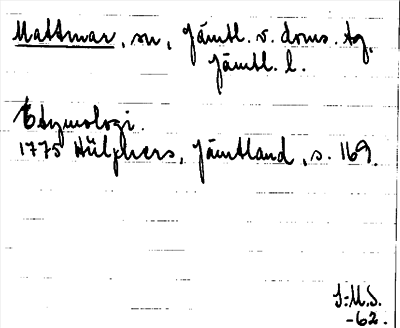 Mattmar, sn, Jämtl. v. doms. tg,
Jämtl. l.
Etymologi.
1775 Hülphers, Jämtland, s. 169.
S:M.S.
-62.